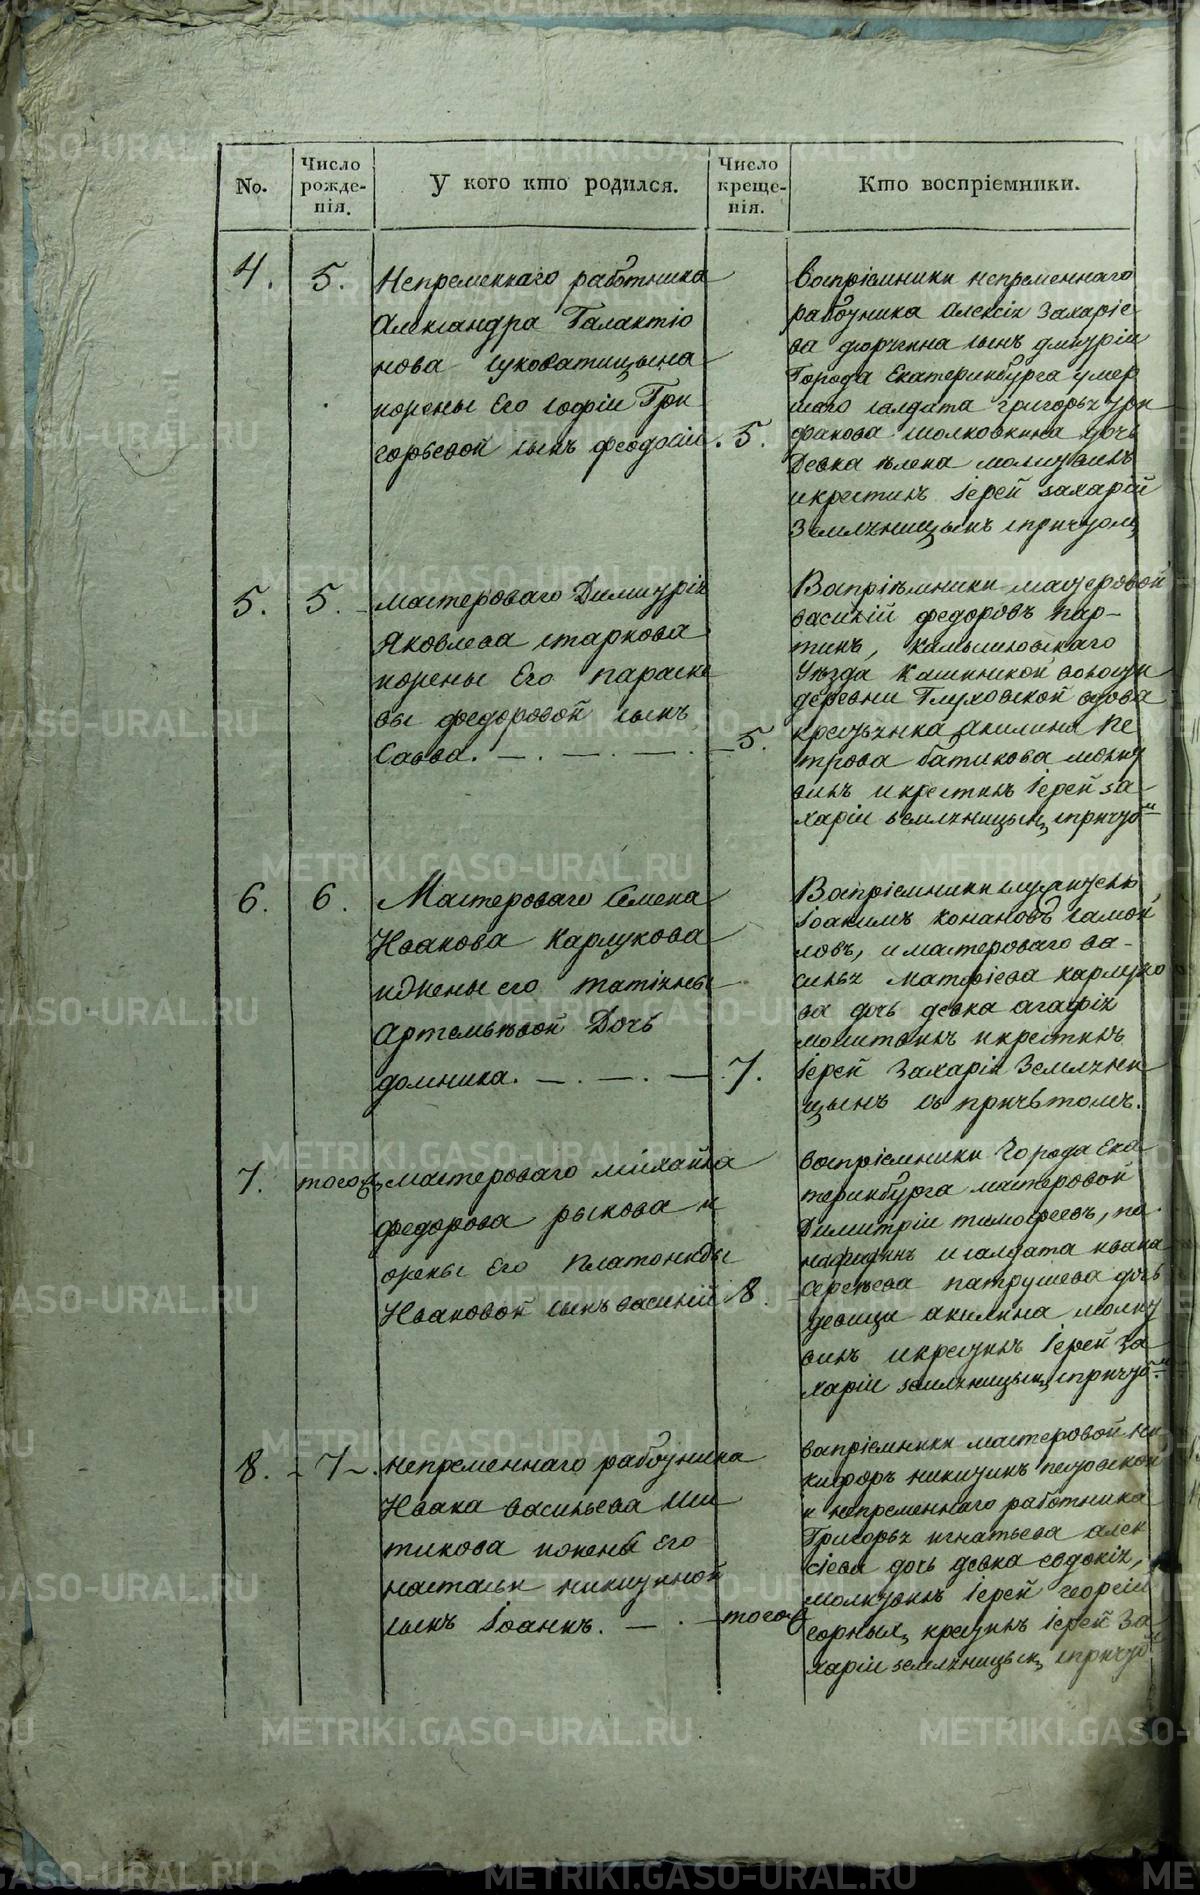 No.
Число рожде-нія.
У кого кто родился.
Число креще-нія.
Кто воспріемники.
4.
5.
Непременнаго работника
Александра Галактіо
нова Суковатицына
ижены Его Софіи Гри
горьевой сынъ феодосій
5.
воспріемники непременнаго
работника Алексія Захаріе
ва сынъ дмитрій
Города Екатеринбурга умер
шаго салдата григорья три
фанова молковкина дочь
Девка елена молитвилъ
икрестилъ Іерей захарій
Земляницынъ спричтомъ
5.
5.
мастероваго Димитрія
Яковлева старкова
ижены Его параске
вы федоровой сынъ
Савва.
5.
Воспріемники мастеровой
василій федоровъ пар-
тинъ, камышловскаго
Уезда волости
деревни Глуховской вдова
крестьянка Акилина Пе
трова батикова молит
вилъ икрестилъ Іерей за
харіи земляницын спричтом
6.
6.
Мастероваго Семена
Иванова Карлукова
ижены его татіяны
Артемьевой Дочь
домника.
7.
Воспріемники служитель
Іоакимъ Конановъ самой
ловъ, и мастероваго ва-
силья матфіева карлуко
ва дочь девка агафія
молитвилъ икрестилъ
Іерей Захаріи Землянни
цынъ съ причетомъ.
7.
тогож
мастероваго михайла
федорова рыкова иж
ены Его Платониды
Ивановой сынъ василій
8.
воспріемники города Ека
теринбурга мастеровой
Димитріи тимофеевъ, па
нафидинъ и салдата ивана
арсеева патрушева дочь
девица акилина молит
вилъ икрестилъ Іерей за
харіи земляницын спричтом
8.
7
непременнаго работника
Ивана васильева Ши
тикова ижены Его
настасьи никитиной
сынъ Іоаннъ.
тогож
воспріемники мастеровой ни
кифоръ никитинъ
и непременнаго работника
Григорья игнатьева алек
сіева дочь девка евдокія,
молитвилъ Іерей георгіи
горных, крестилъ Іерей За
харіи землянницын спричтом
METRIKI.GASO-URAL.RU